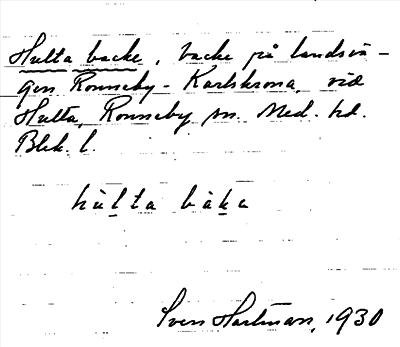 Hulta backe, backe på landsvä-
gen Ronneby - Karlskrona, vid
Hulta, Ronneby sn. Med. hd.
Blek. l.
hùlta bàka
Sven Hartman, 1930